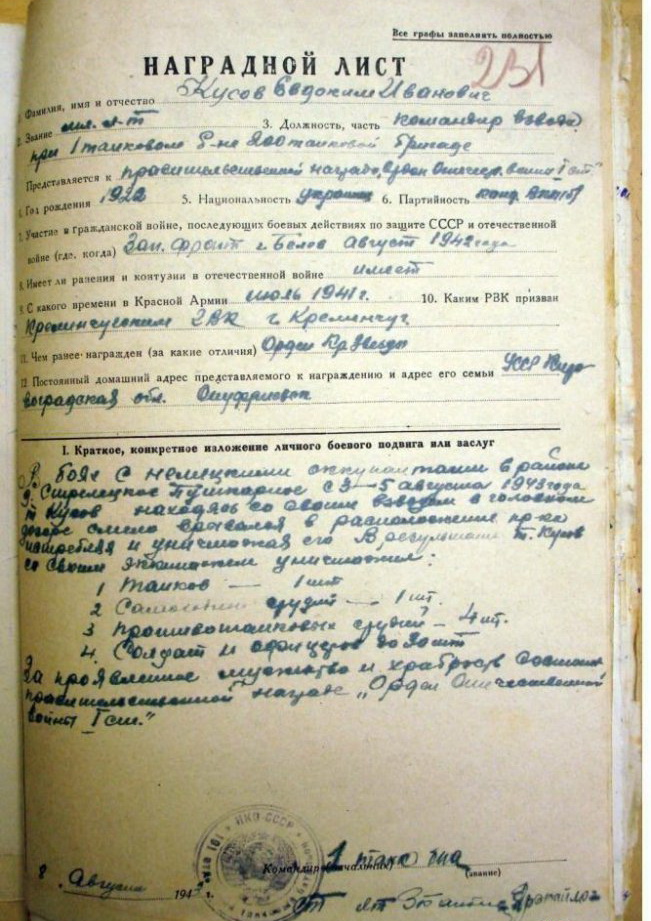 Все графы заполнить полностью
НАГРАДНОЙ ЛИСТ
231
1. Фамилия, имя и отчество Кусов Евдоким Иванович
2. Звание мл. л-т 3. Должность, часть командир взвода
при 1 танковом б-не 200 танковой бригаде
Представляется к правительственной награде, орден Отечеств. войны I ст."
4. Год рождения 1922 5. Национальность украинец 6. Партийность канд. ВКП(б)
7. Участие в гражданской войне, последующих боевых действиях по защите СССР и отечественной
войне (где, когда) Зап. фронт г. Белов август 1942 года
8. Имеет ли ранения и контузии в отечественной войне имеет
9. С какого времени в Красной Армии июль 1941 г. 10. Каким РВК призван
Кременчугским ГВК г. Кременчуг
11. Чем ранее награжден (за какие отличия) Орден Кр. Звезды
12. Постоянный домашний адрес представляемого к награждению и адрес его семьи УССР Киро
воградская обл.
I. Краткое, конкретное изложение личного боевого подвига или заслуг
В боях с немецкими оккупантами в районе
Стрелецкое Пушкарное с 3-5 августа 1943 года
т. Кусов находясь со своим взводом в головном
дозоре смело врывался в расположение пр-ка
истребляя и уничтожая его. В результате т. Кусов
со своим экипажем уничтожил:
1 Танков — 1 шт
2 Самоходных орудий — 1 шт.
3 Противотанковых орудий — 4 шт.
4. Солдат и офицеров до 30 шт
За проявленное мужество и храбрость достоин
правительственной награде „Орден Отечественной
войны I ст."
Командир (начальник) 1 танк б-на
(звание)
8 Августа 194 г.
НКО-СССР